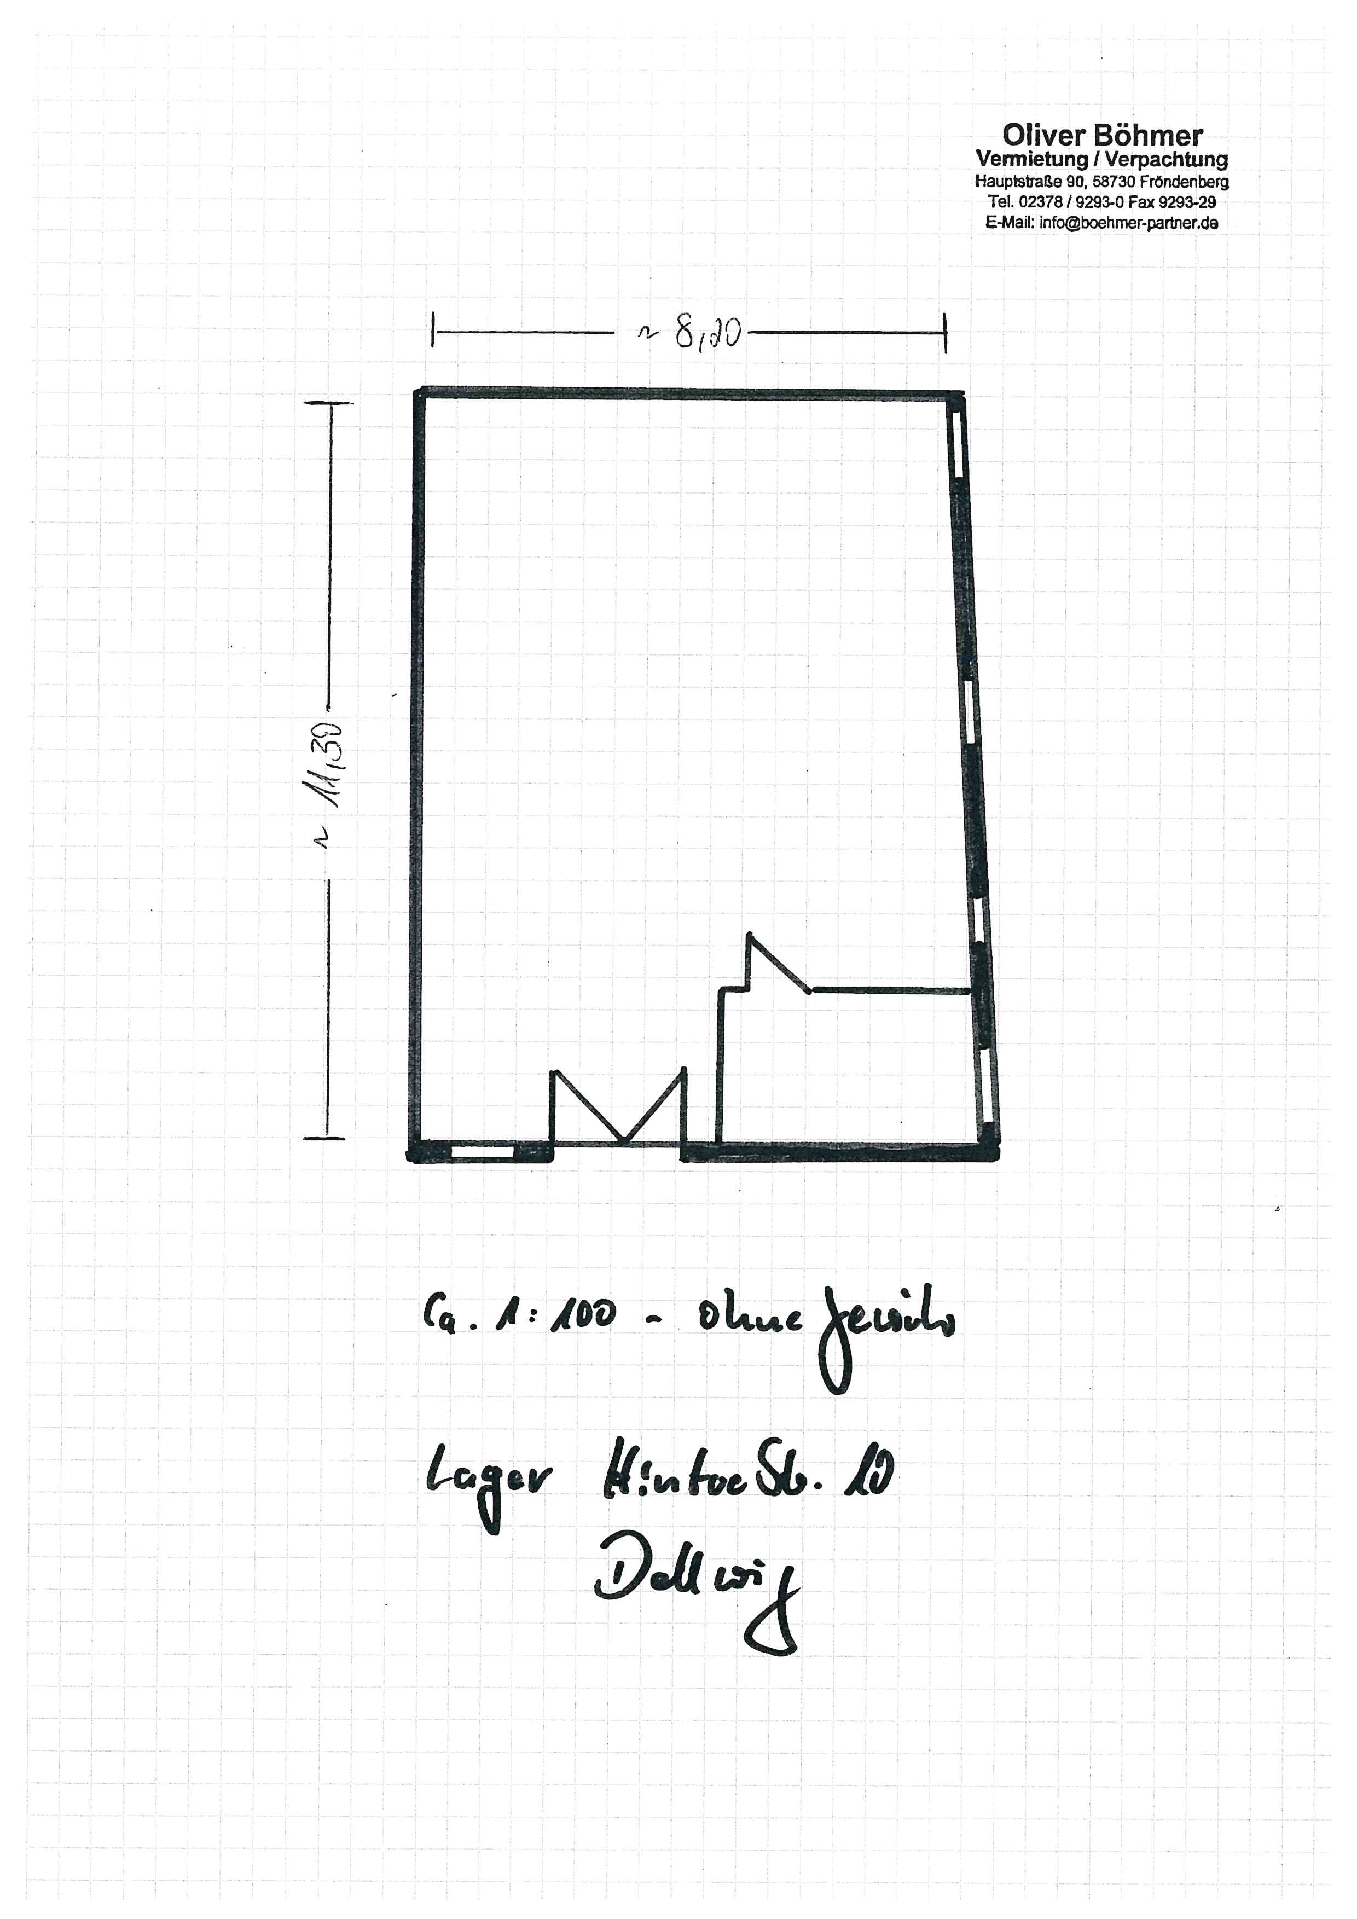 Oliver Böhmer
Vermietung / Verpachtung
Hauptstraße 90, 58730 Fröndenberg
Tel. 02378 / 9293-0 Fax 9293-29
E-Mail: info@boehmer-partner.de
~ 8,20
~ 11,30
Ca. 1:100 - ohne Gewähr
Lager Hintere Str. 10
Dellwig